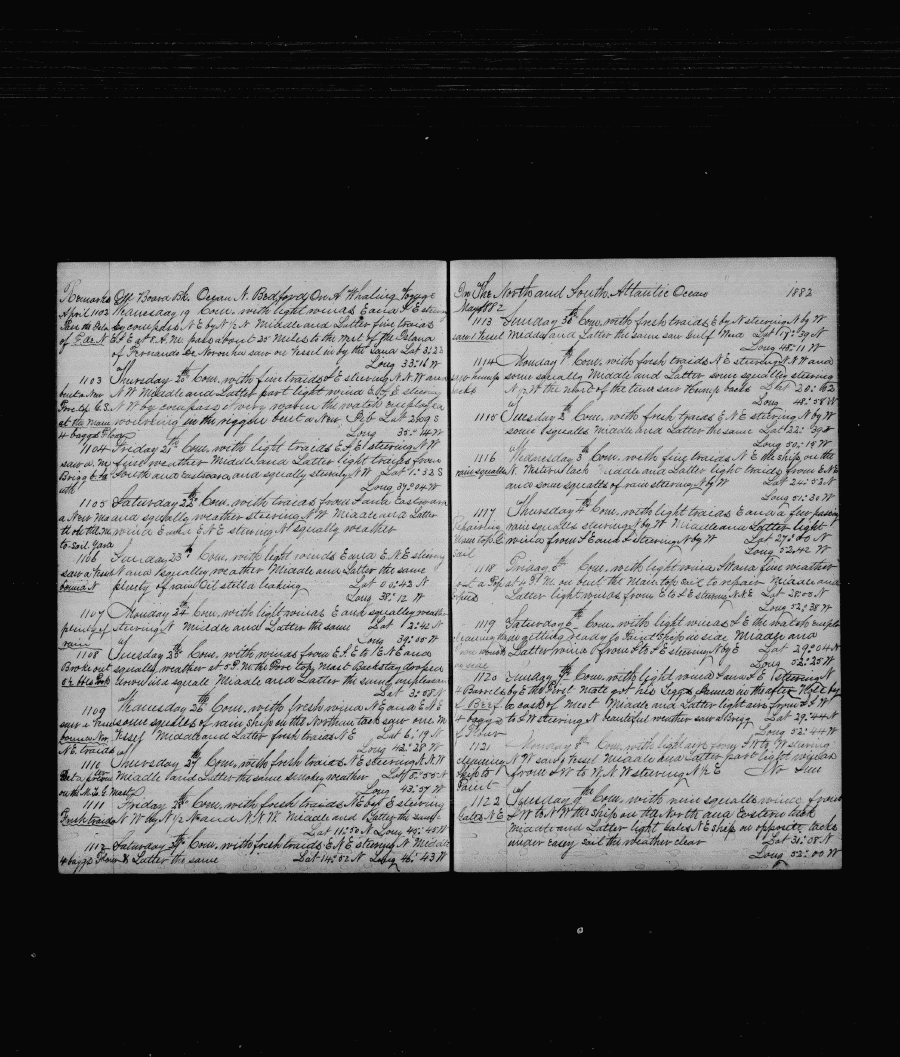 Remarks On Board Bk. Ocean N. Bedford On A Whaling Voyage
April 1102 Wednesday 19 Com. with light winds E and S E steering
by compass N E by N 1/2 N Middle and Latter fine traids
of F. de N E S E at 8 A.M. pass about 20 Miles to the West of the Island
of Fernando De Noronha saw on Vessel in by the Land Lat 3:23
Long 33:16 W
1103 Thursday 20th Com. with fine traids S E steering N.N.W and
bent a New N W Middle and Latter part light wind E by E steering
Fore top G.S. N W by compass very warm the watch employed
at the main working in the riggin bent a New Jib Lat 2:09 S
4 baggs Flour Long 35:14 W
1104 Friday 21th Com. with light traids E S E steering N W
saw a M fine weather Middle and Latter light traids from
Brigg South and Eastward and squally steering N W Lat 1:32 S
uth Long 37:04 W
1105 Saturday 22th Com. with traids from S and Eastward
a New Ma and squally weather steering N W Middle and Latter
wind E and E N E steering N squally weather
to-sail Yard
1106 Sunday 23th Com. with light winds E and E N E steering
saw a Vessel N and squally weather Middle and Latter the same
bound N plenty of rain Oil still a leaking Lat 00:42 N
Long 38:12 W
1107 Monday 24 Com. with light winds E and squally weather
plenty of steering N Middle and Latter the same Lat 2:42 N
rain Long 39:00 W
1108 Tuesday 25th Com. with winds from E S E to E N E and
Broke out squally weather at 5 P.M. the Fore top Mast Backstay droped
down in a squall Middle and Latter the same unpleasant
Lat 3:58 N
1109 Thursday 26th Com. with fresh wind N E and E N E
saw a Vessel some squalls of rain Ship on the Northan tack saw one M
bound Nor. Vessel Middle and Latter fresh traids N E Lat 6:19 N
N.E. traids Long 42:28 W
1110 Thursday 27 Com. with fresh traids N E steering N.N.W
Middle and Latter the same smoky weather Lat 8:55 N
on the M. G. Mast Long 43:57 W
1111 Friday 28th Com. with fresh traids N E by E steering
Fresh traids N W by N 1/2 N and N.N.W. Middle and Latter the same
Lat 11:50 N Long 45:45 W
1112 Saturday 29th Com. with fresh traids E N E steering N Middle
4 baggs Flour & Latter the same Lat 14:52 N Long 46:43 W
In The North and South Atlantic Ocean 1882
May 1882
1113 Sunday 30th Com. with fresh traids E by N steering N by W
saw 1 Vessel Middle and Latter the same saw Gulf Weed Lat 17:39 N
Long 48:11 W
1114 Monday 1th Com. with fresh traids N E steering N.N.W and
saw hump some squally Middle and Latter some squally steering
backs N 1/2 W the most of the time saw Hump backs Lat 20:16
Long 48:58 W
1115 Tuesday 2th Com. with fresh traids E N E steering N by W
some squalls Middle and Latter the same Lat 22:39 N
Long 50:19 W
1116 Wednesday 3th Com. with fine traids N E the ship on the
rain squalls N. Western tack Middle and Latter light traids from E N E
and some squalls of rain steering N by W Lat 24:53 N
Long 51:30 W
1117 Thursday 4th Com. with light traids E and a few passing
repairing rain squalls steering N by W Middle and Latter light
Main top G winds from S E and S steering N by W Lat 27:00 N
sail Long 52:42 W
1118 Friday 5th Com. with light wind S and fine weather
at 4 P M on bent the Main top sail to repair Middle and
Latter light winds from E to S E steering N.N.E Lat 28:00 N
Long 52:38 W
1119 Saturday 6th Com. with light winds S E the watch employ
cleaning and getting ready to Paint Ship in side Middle and
Latter wind from S to S E steering N by E Lat 29:04 N
in side Long 52:25 W
1120 Sunday 7th Com. with light wind S and S E steering N
4 Barrels by E the First Mate got his Legg Jamed in the after Hole by
of Beef a cask of meat Middle and Latter light air from S S W
4 baggs to S W steering N beautiful weather saw a Brigg Lat 29:44 N
of Flour Long 52:44 W
1121 Monday 8th Com. with light airs from S W to W steering
cleaning N W saw 1 Vessel Middle and Latter part light winds
Ship to from S W to W.N.W steering N 1/2 E No Sun
Paint
1122 Tuesday 9th Com. with rain squalls wind from
Gales N.E S W to N W the ship on the North and Eastern tack
Middle and Latter light Gales N.E Ship on opposite tacks
under easy sail the weather clear Lat 31:08 N
Long 52:00 W